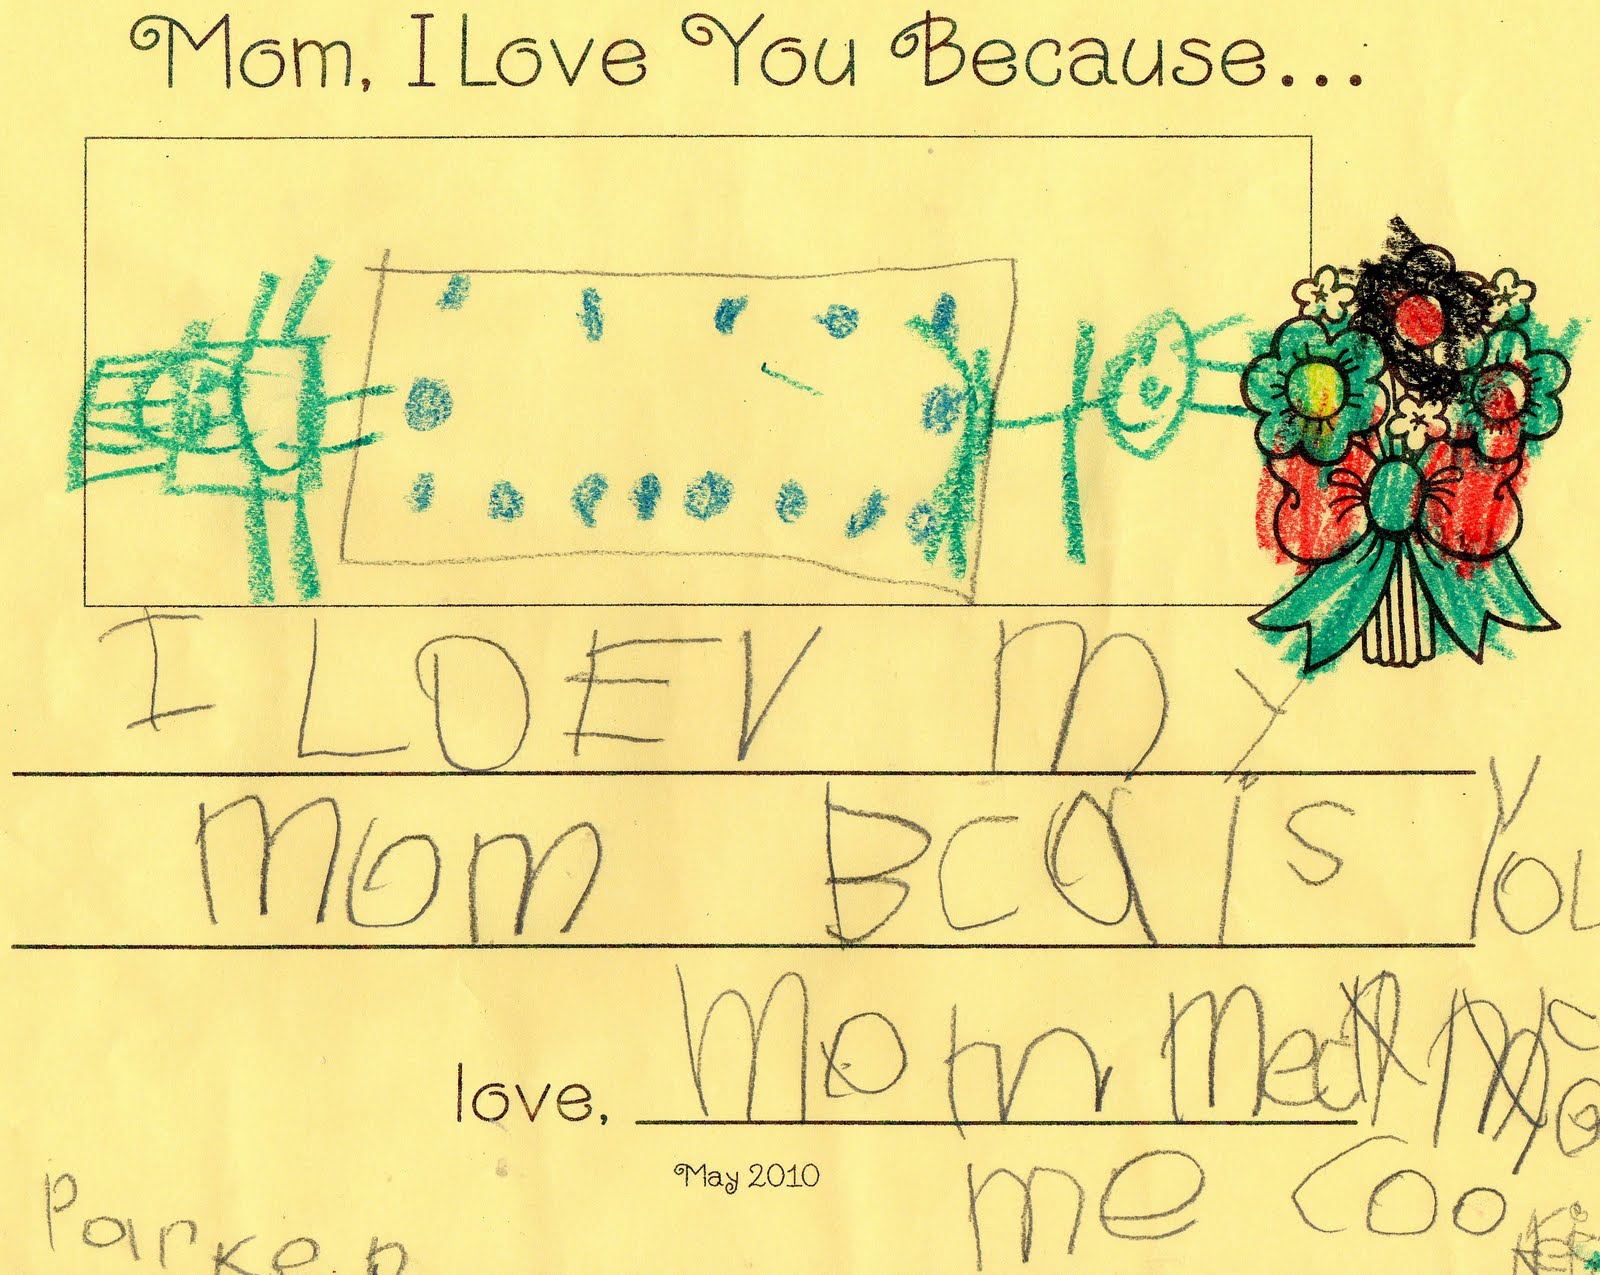 Mom, I Love You Because...
I LOEV my
mom BCAIS You
love, mom
May 2010
me coo
Parker